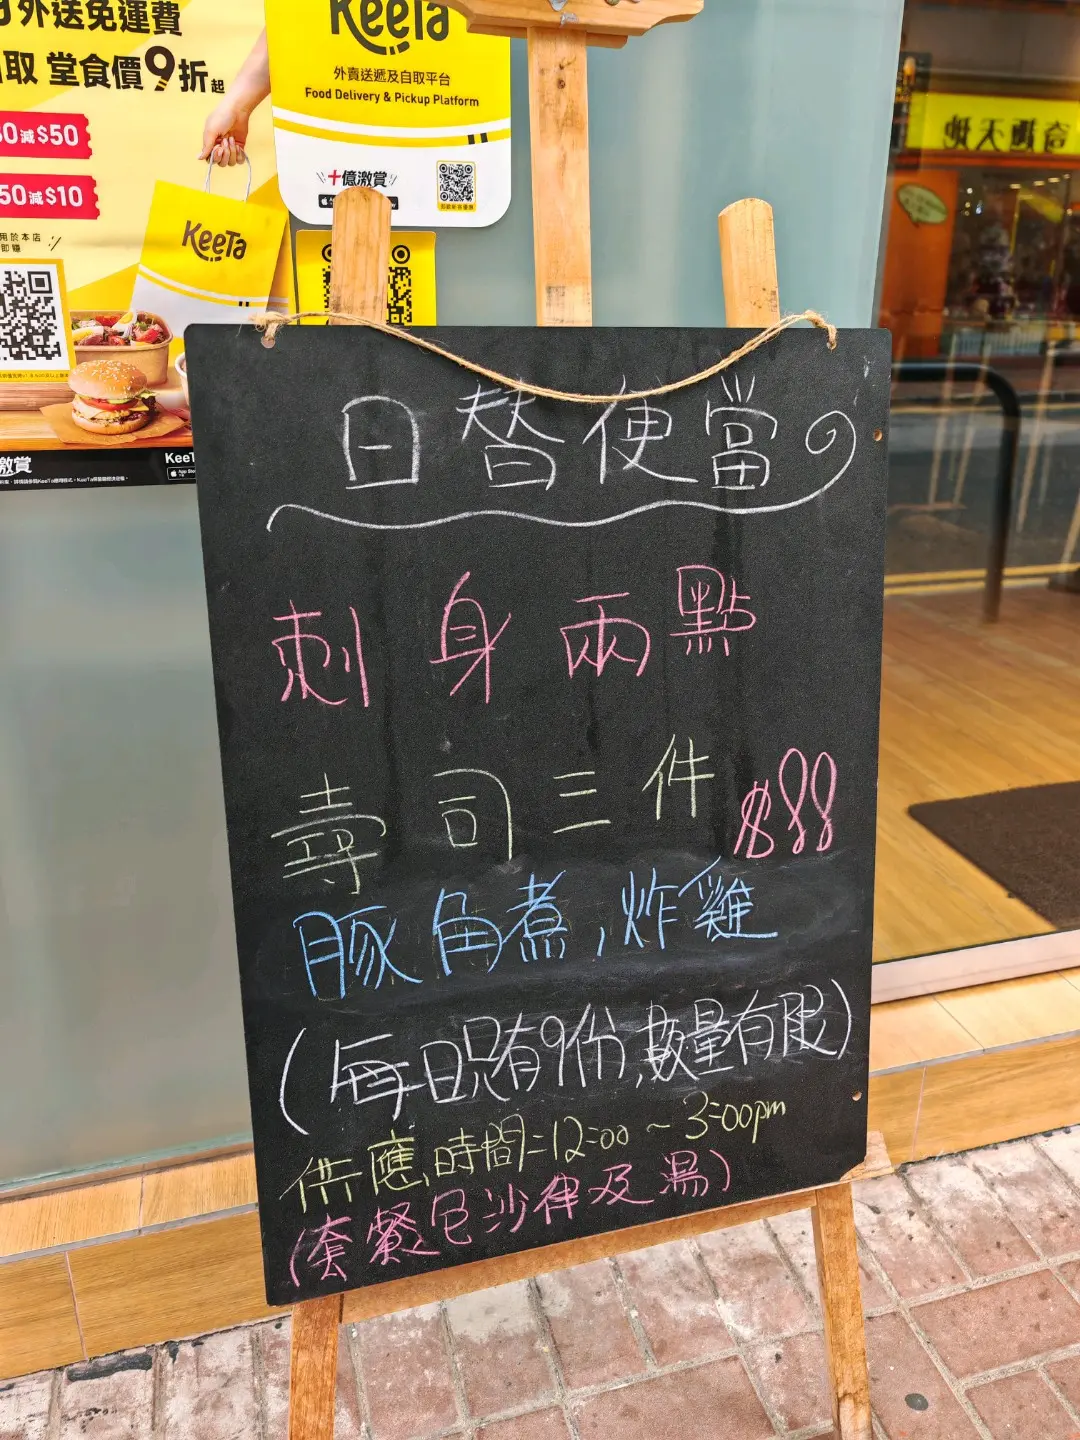 外送免運費
取 堂食價9折起
0減$50
50減$10
用於本店
即賺
KeeTa
KeeTa
外賣送遞及自取平台
Food Delivery & Pickup Platform
十億激賞
激賞
奇趣天地
日替便當
刺身兩點
壽司三件 $88
豚角煮,炸雞
(每日只有9份,數量有限)
供應時間=12:00~3:00pm
(套餐包沙律及湯)